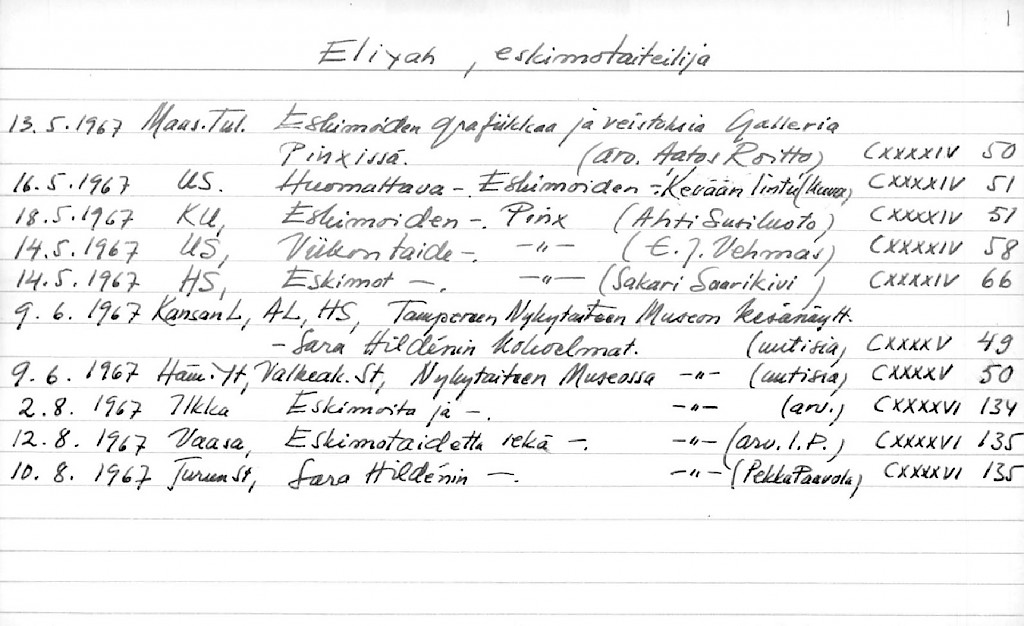 1
Eliyah, eskimotaiteilija
13.5.1967 Maas.Tul. Eskimoiden grafiikkaa ja veistoksia Galleria
Pinxissä. (arv. Aatos Roitto) CXXXXIV 50
16.5.1967 US. Huomattava -. Eskimoiden -. Kevään lintu (kuva) CXXXXIV 51
18.5.1967 KU, Eskimoiden -. Pinx (Ahti Susiluoto) CXXXXIV 51
14.5.1967 US, Viikon taide -. -"- (E.J. Vehmas) CXXXXIV 58
14.5.1967 HS, Eskimot -. -"- (Sakari Saarikivi) CXXXXIV 66
9.6.1967 Kansan L, AL, HS, Tampereen Nykytaiteen Museon kesänäytt.
- Sara Hildénin kokoelmat. (uutisia) CXXXXV 49
9.6.1967 Häm.Yt, Valkeak.St, Nykytaiteen Museossa -"- (uutisia) CXXXXV 50
2.8.1967 Ilkka Eskimoita ja -. -"- (arv.) CXXXXVI 134
12.8.1967 Vaasa, Eskimotaidetta sekä -. -"- (arv. I.P.) CXXXXVI 135
10.8.1967 Turun St, Sara Hildénin -. -"- (Pekka Paavola) CXXXXVI 135